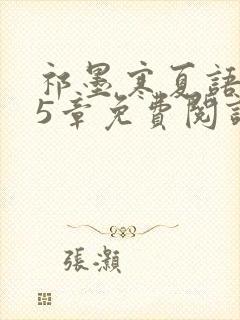 祁墨寒夏語
5章免費閱讀
張灝